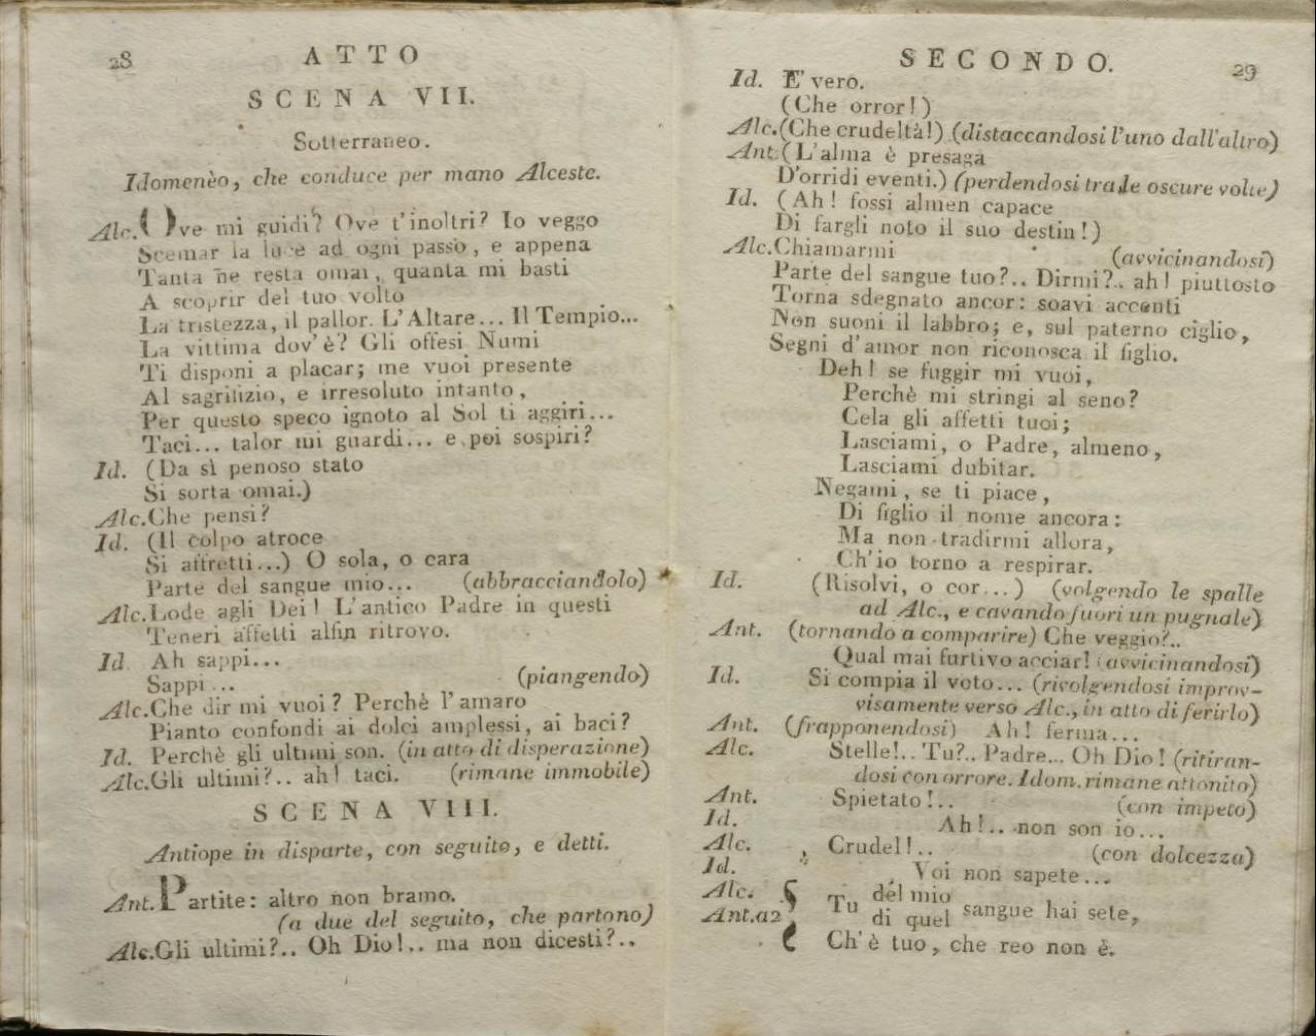 28
ATTO
SCENA VII.
Sotterraneo.
Idomenèo, che conduce per mano Alceste.
Alc. Ove mi guidi? Ove t'inoltri? Io veggo
Scemar la luce ad ogni passo, e appena
Tanta ne resta omai, quanta mi basti
A scoprir del tuo volto
La tristezza, il pallor. L'Altare... Il Tempio...
La vittima dov'è? Gli offesi Numi
Ti disponi a placar; me vuoi presente
Al sagrifizio, e irresoluto intanto,
Per questo speco ignoto al Sol ti aggiri...
Taci... talor mi guardi... e poi sospiri?
Id. (Da sì penoso stato
Si sorta omai.)
Alc. Che pensi?
Id. (Il colpo atroce
Si affretti...) O sola, o cara
Parte del sangue mio... (abbracciandolo)
Alc. Lode agli Dei! L'antico Padre in questi
Teneri affetti alfin ritrovo.
Id. Ah sappi...
Sappi... (piangendo)
Alc. Che dir mi vuoi? Perchè l'amaro
Pianto confondi ai dolci amplessi, ai baci?
Id. Perchè gli ultimi son. (in atto di disperazione)
Alc. Gli ultimi?.. ah! taci. (rimane immobile)
SCENA VIII.
Antiope in disparte, con seguito, e detti.
Ant. Partite: altro non bramo.
(a due del seguito, che partono)
Alc. Gli ultimi?.. Oh Dio!.. ma non dicesti?..
SECONDO.
29
Id. E' vero.
(Che orror!)
Alc. (Che crudeltà!) (distaccandosi l'uno dall'altro)
Ant. (L'alma è presaga
D'orridi eventi.) (perdendosi tra le oscure volte)
Id. (Ah! fossi almen capace
Di fargli noto il suo destin!)
Alc. Chiamarmi (avvicinandosi)
Parte del sangue tuo?.. Dirmi?.. ah! piuttosto
Torna sdegnato ancor: soavi accenti
Non suoni il labbro; e, sul paterno ciglio,
Segni d'amor non riconosca il figlio.
Deh! se fuggir mi vuoi,
Perchè mi stringi al seno?
Cela gli affetti tuoi;
Lasciami, o Padre, almeno,
Lasciami dubitar.
Negami, se ti piace,
Di figlio il nome ancora:
Ma non tradirmi allora,
Ch'io torno a respirar.
Id. (Risolvi, o cor...) (volgendo le spalle
ad Alc., e cavando fuori un pugnale)
Ant. (tornando a comparire) Che veggio?..
Qual mai furtivo acciar! (avvicinandosi)
Id. Si compia il voto... (rivolgendosi improv-
visamente verso Alc., in atto di ferirlo)
Ant. (frapponendosi) Ah! ferma...
Alc. Stelle!.. Tu?.. Padre... Oh Dio! (ritiran-
dosi con orrore. Idom. rimane attonito)
Ant. Spietato!.. (con impeto)
Id. Ah!.. non son io...
Alc. Crudel!.. (con dolcezza)
Id. Voi non sapete...
Alc. Tu del mio sangue hai sete,
Ant. a2 di quel
Ch'è tuo, che reo non è.